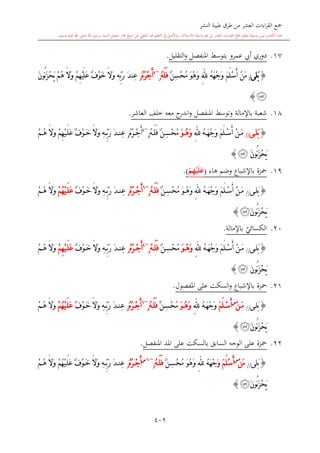 جمع القراءات العشر من طرق طيبة النشر
١٧. دوري أبي عمرو بتوسط المنفصل والتقليل.
﴿ بَلَىٰ مَنْ أَسْلَمَ وَجْهَهُ لِلَّهِ وَهُوَ مُحْسِنٌ فَلَهُ أَجْرُهُ عِندَ رَبِّهِ وَلَا خَوْفٌ عَلَيْهِمْ وَلَا هُمْ يَحْزَنُونَ
﴾
١٨. شعبة بالإمالة وتوسط المنفصل واندرج معه خلف العاشر.
﴿ بَلَىٰ مَنْ أَسْلَمَ وَجْهَهُ لِلَّهِ وَهُوَ مُحْسِنٌ فَلَهُ أَجْرُهُ عِندَ رَبِّهِ وَلَا خَوْفٌ عَلَيْهِمْ وَلَا هُمْ
يَحْزَنُونَ ﴾
١٩. حمزة بالإشباع وضم هاء (عَلَيْهُمْ).
﴿ بَلَىٰ مَنْ أَسْلَمَ وَجْهَهُ لِلَّهِ وَهُوَ مُحْسِنٌ فَلَهُ أَجْرُهُ عِندَ رَبِّهِ وَلَا خَوْفٌ عَلَيْهُمْ وَلَا هُمْ
يَحْزَنُونَ ﴾
٢٠. الكسائيّ بالإمالة.
﴿ بَلَىٰ مَنْ أَسْلَمَ وَجْهَهُ لِلَّهِ وَهُوَ مُحْسِنٌ فَلَهُ أَجْرُهُ عِندَ رَبِّهِ وَلَا خَوْفٌ عَلَيْهِمْ وَلَا هُمْ
يَحْزَنُونَ ﴾
٢١. حمزة بالإشباع والسكت على المفصول.
﴿ بَلَىٰ مَنْ أَسْلَمَ وَجْهَهُ لِلَّهِ وَهُوَ مُحْسِنٌ فَلَهُ أَجْرُهُ عِندَ رَبِّهِ وَلَا خَوْفٌ عَلَيْهُمْ وَلَا هُمْ
يَحْزَنُونَ ﴾
٢٢. حمزة على الوجه السابق بالسكت على المد المنفصل.
﴿ بَلَىٰ مَنْ أَسْلَمَ وَجْهَهُ لِلَّهِ وَهُوَ مُحْسِنٌ فَلَهُ أَجْرُهُ عِندَ رَبِّهِ وَلَا خَوْفٌ عَلَيْهُمْ وَلَا هُمْ
يَحْزَنُونَ ﴾
٤٠٢